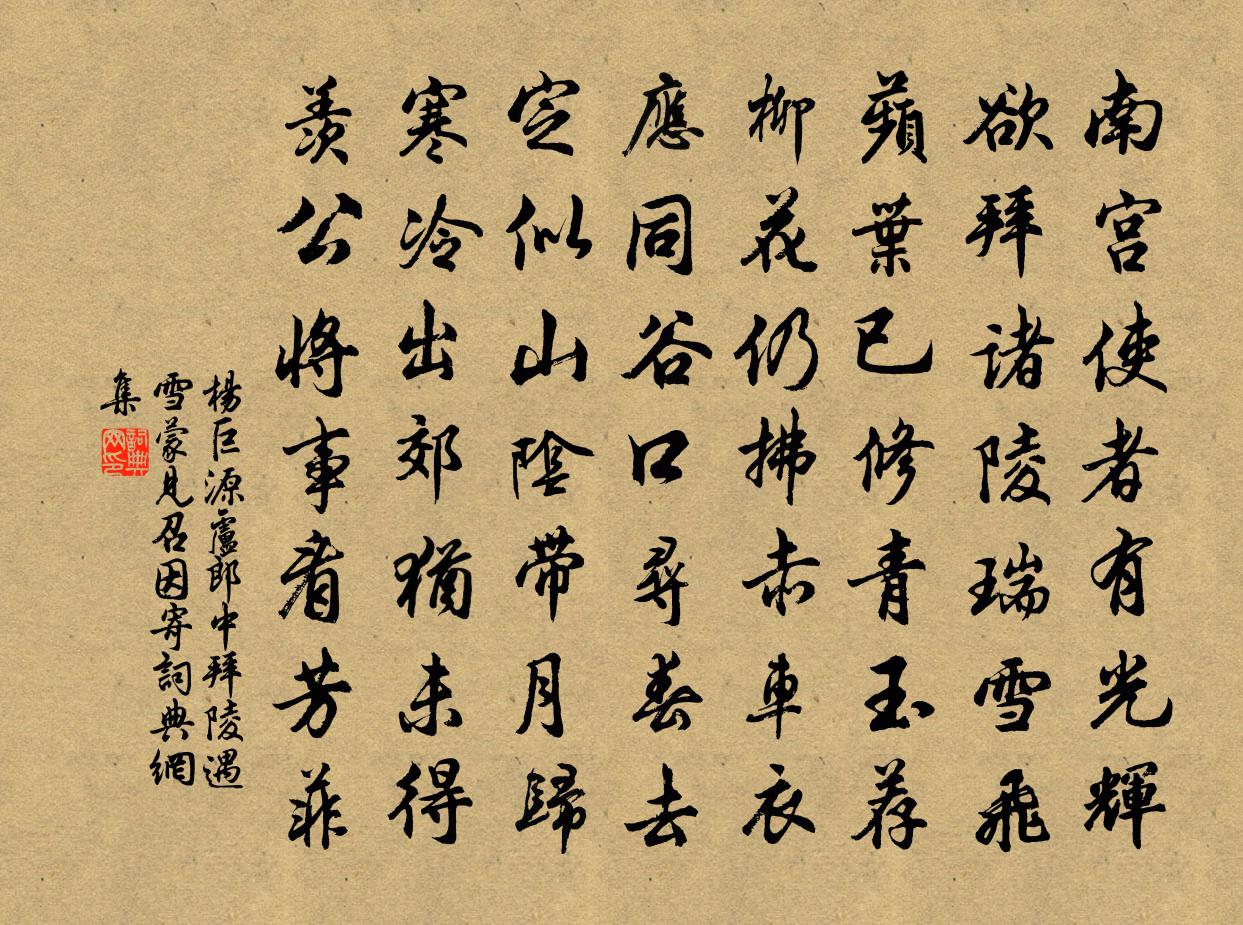 南宮使者有光輝
欲拜諸陵瑞雪飛
蘋葉已修青玉荐
柳花仍拂赤車衣
應同谷口尋春去
定似山陰带月歸
寒冷出郊猶未得
羨公將事看芳菲
楊巨源盧郎中拜陵遇
雪蒙見召因寄詞典網
集
詞典網印